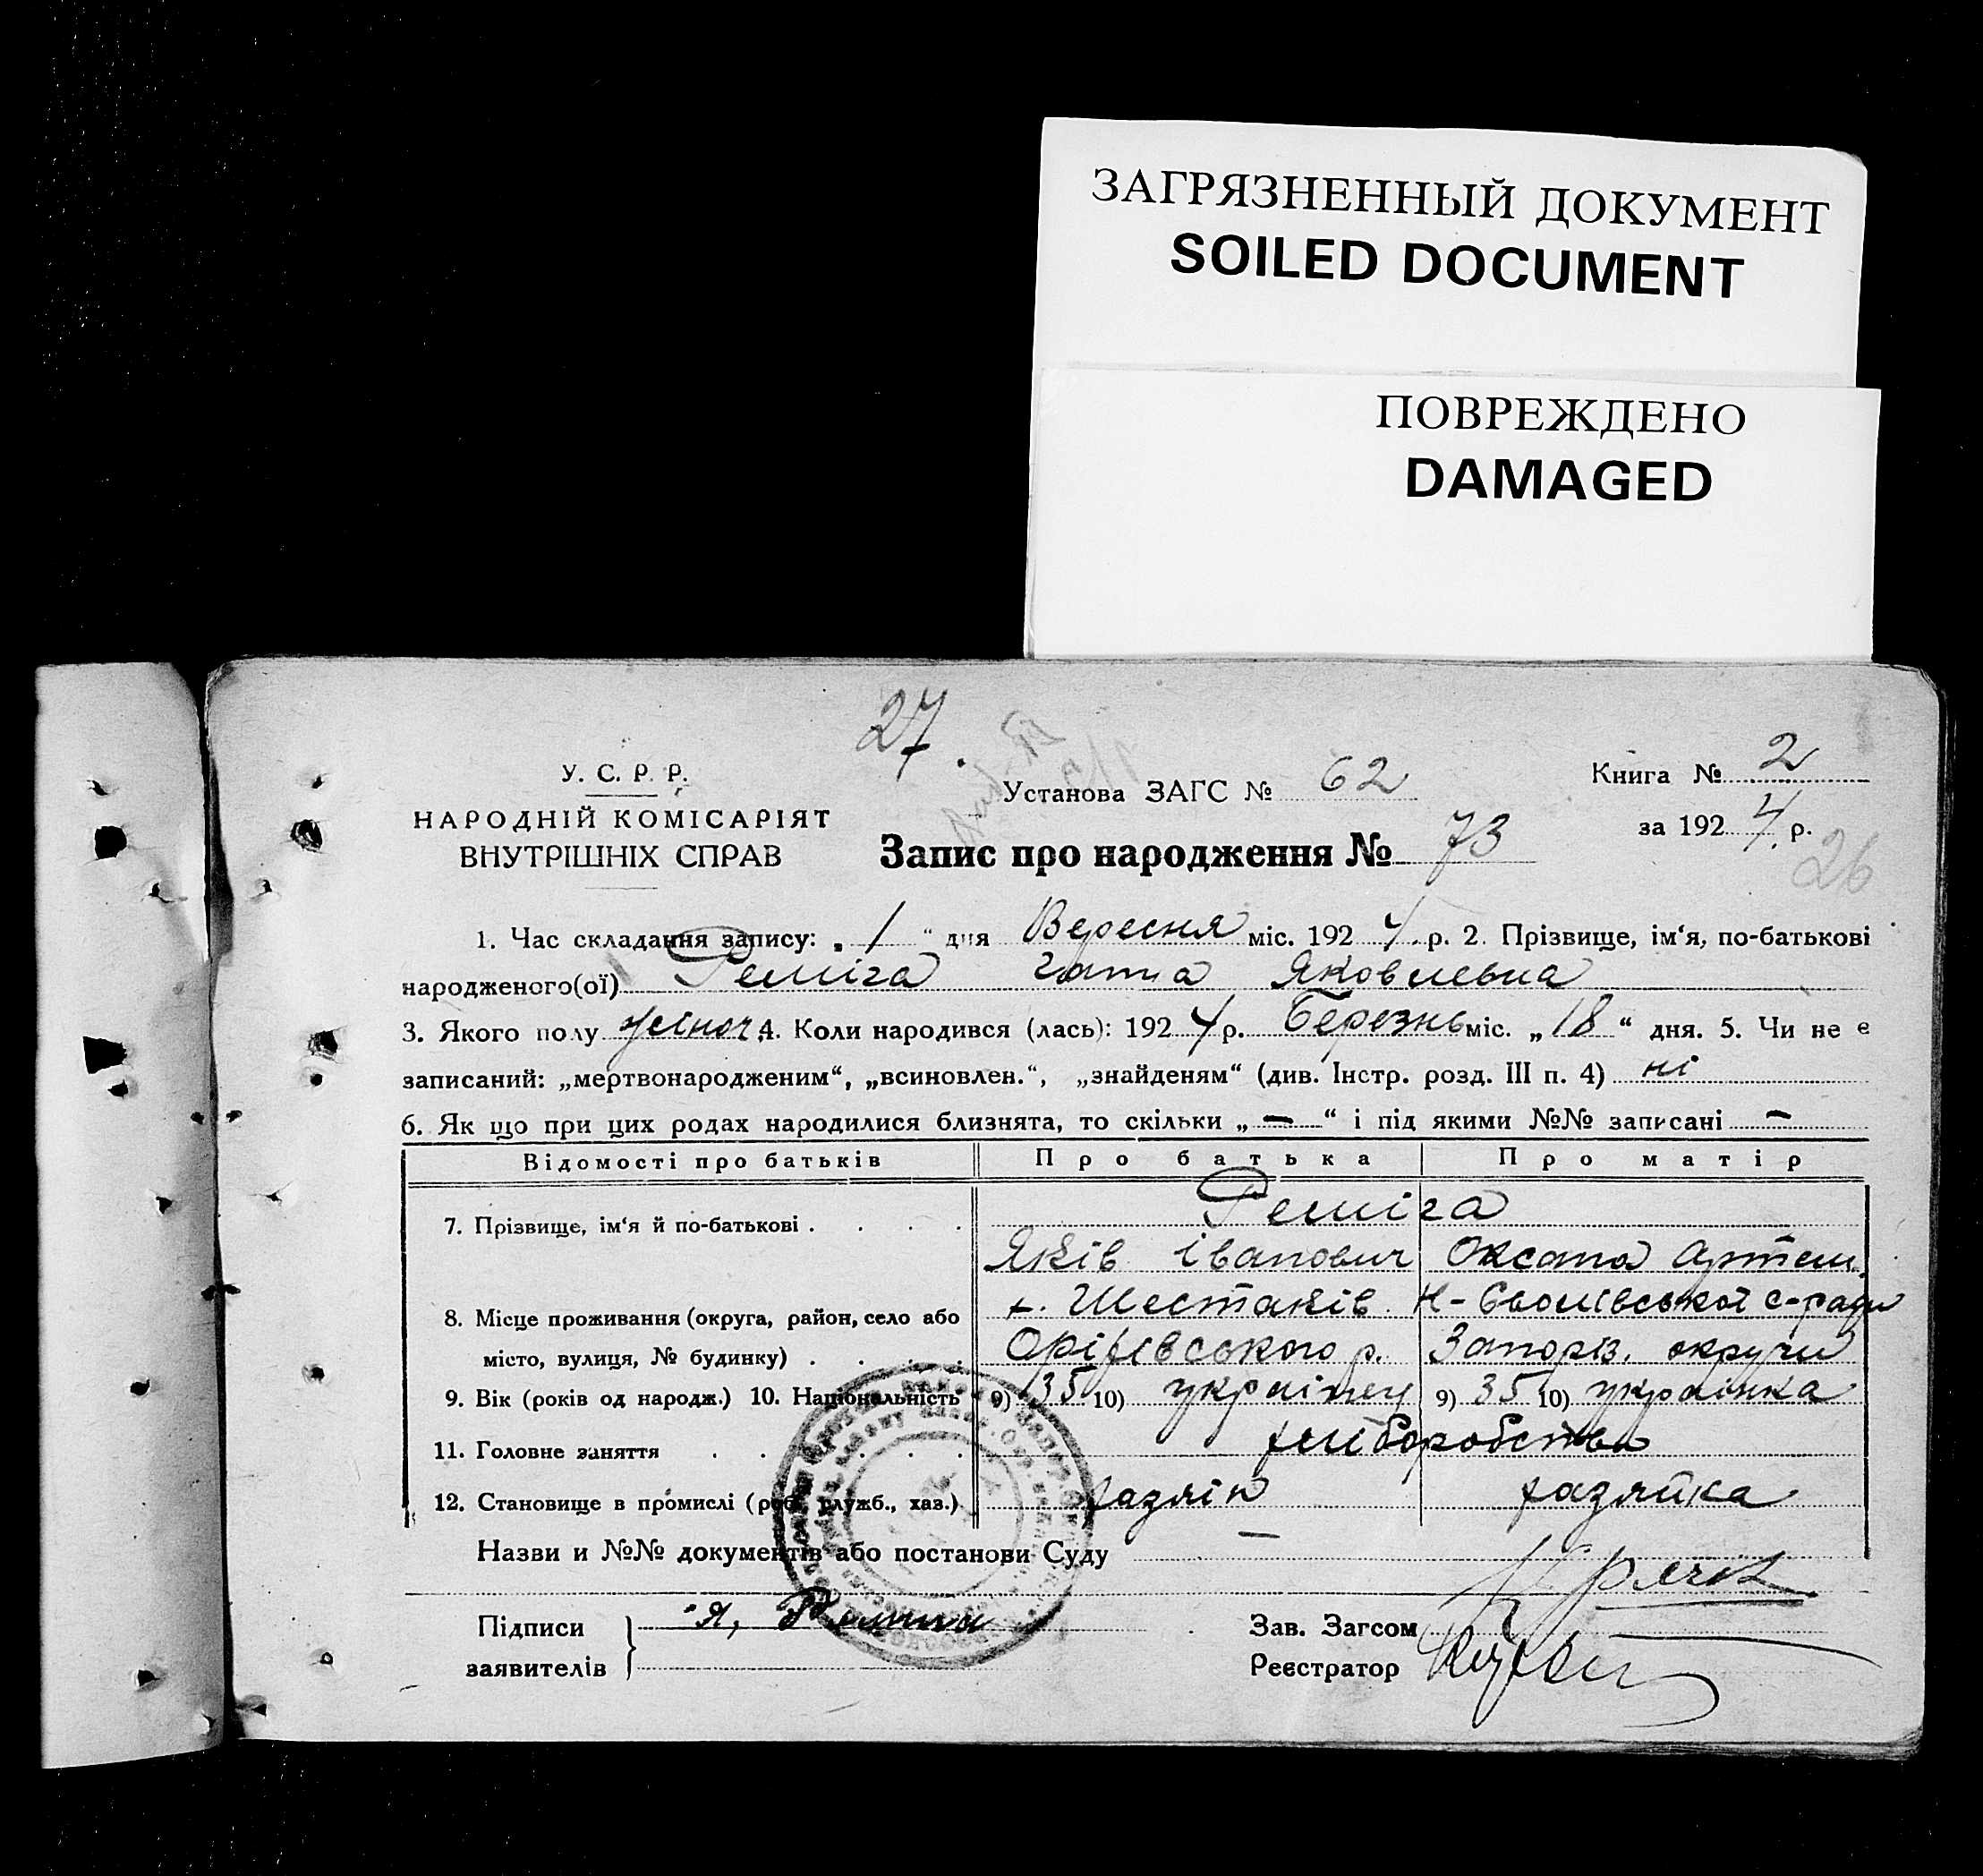 ЗАГРЯЗНЕННЫЙ ДОКУМЕНТ
SOILED DOCUMENT
ПОВРЕЖДЕНО
DAMAGED
27.
У. С. Р. Р.
НАРОДНІЙ КОМІСАРІЯТ
ВНУТРІШНІХ СПРАВ
Установа ЗАГС № 62
Книга № 2
за 192 4 р.
26
Запис про народження № 73
1. Час складання запису: „ 1 “ дня Вересня міс. 192 4 р. 2. Прізвище, ім‘я, по-батькові
народженого(ої) Реміга Гатта Яковлевна
3. Якого полу жіноч. 4. Коли народився (лась): 192 4 р. Березнь міс. „ 18 “ дня. 5. Чи не є
записаний: „мертвонародженим“, „всиновлен.“, „знайденям“ (див. Інстр. розд. III п. 4) ні
6. Як що при цих родах народилися близнята, то скільки „ — “ і під якими №№ записані —
Відомості про батьків Про батька Про матір
Реміга
7. Прізвище, ім‘я й по-батькові . . . .
Яків Іванович Оксана Артем.
8. Місце проживання (округа, район, село або х. Шестаків с-ради
місто, вулиця, № будинку) . . . . Оріхівського р. Запоріз. округи
9. Вік (років од народж.) 10. Національність 9) 35 10) українец 9) 35 10) українка
11. Головне заняття . . . . . . хліборобство
12. Становище в промислі (роб., служб., хаз.) хазяїн хазяйка
Назви и №№ документів або постанови Суду —
Підписи
заявителів
Я,
Зав. Загсом
Реєстратор